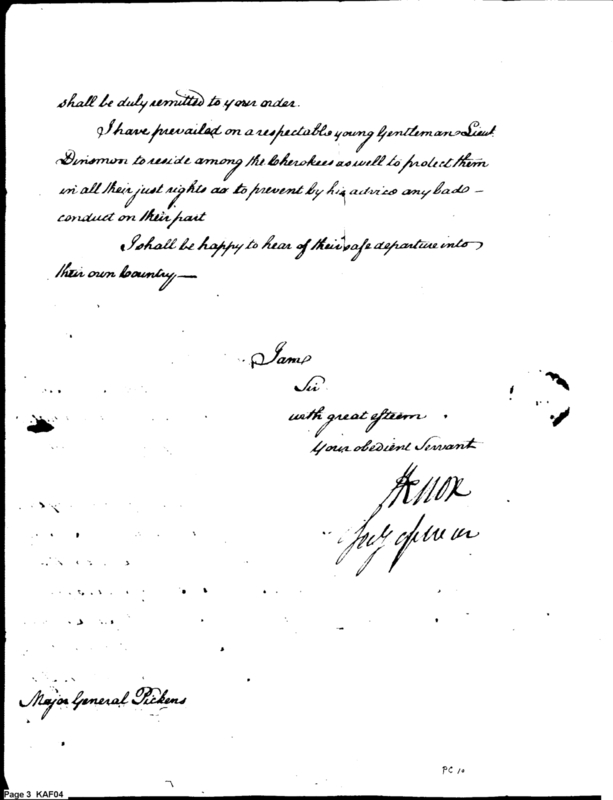 shall be duly remitted to your order.
I have prevailed on a respectable young Gentleman Lieut.
Dinsmoor to reside among the Cherokees as well to protect them
in all their just rights as to prevent by his advice any bad
conduct on their part
I shall be happy to hear of their safe departure into
their own Country,—
I am
Sir
with great esteem
Your obedient Servant
HKnox
Secy of war
Major General Pickens
PC 10
Page 3 KAF04